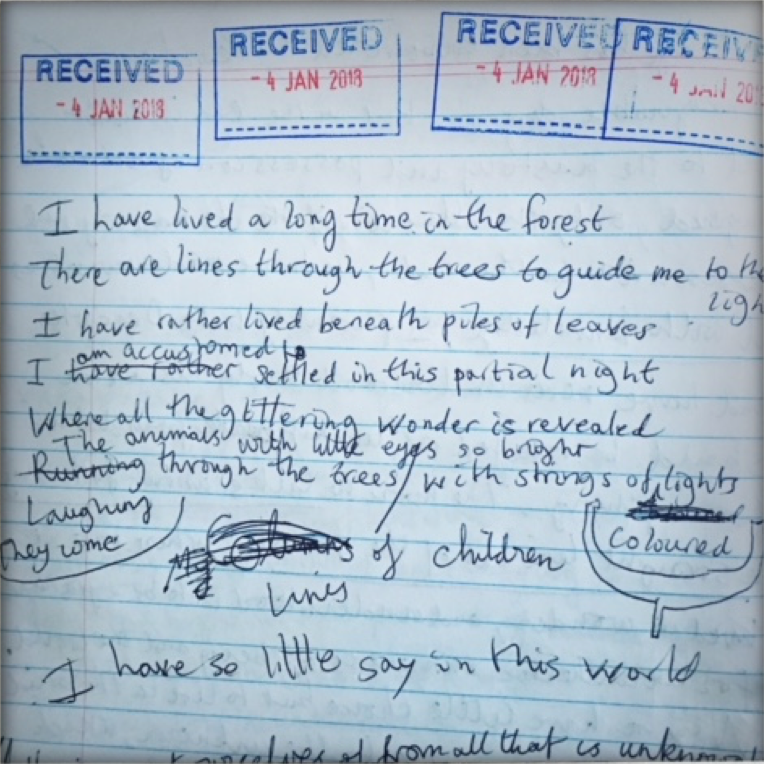 RECEIVED
- 4 JAN 2018
RECEIVED
- 4 JAN 2018
RECEIVED
- 4 JAN 2018
RECEIV
- 4 JAN 201
I have lived a long time in the forest
There are lines through the trees to guide me to the
ligh
I have rather lived beneath piles of leaves
am accustomed to
I have rather settled in this partial night
Where all the glittering wonder is revealed
The animals with little eyes so bright
Running through the trees with strings of lights
Laughing
They come
Coloured
of children
Lines
I have so little say in this world
of from all that is unknown